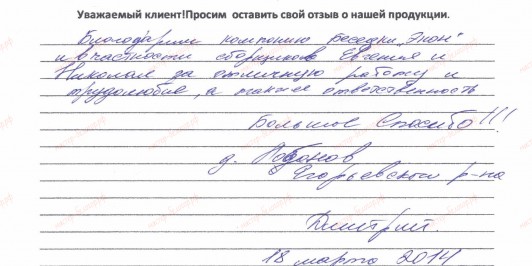 Уважаемый клиент!Просим оставить свой отзыв о нашей продукции.
Благодарим компанию Беседки „Эком"
и в частности сборщиков Евгения и
Николая за отличную работу и
трудолюбие, а также ответственность
Большое Спасибо!!!
д.
Егорьевского р-на
Дмитрий.
18 марта 2014